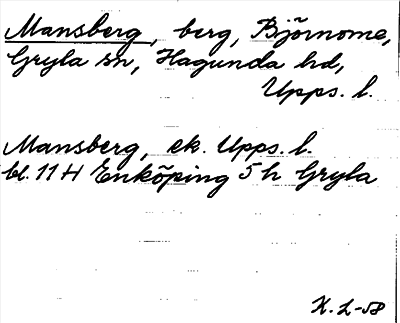 Mansberg, berg, Björnome,
Gryla sn, Hagunda hd,
Upps. l.
Mansberg, ek. Upps. l.
bl. 11 H Enköping 5 h Gryla
K. L-58